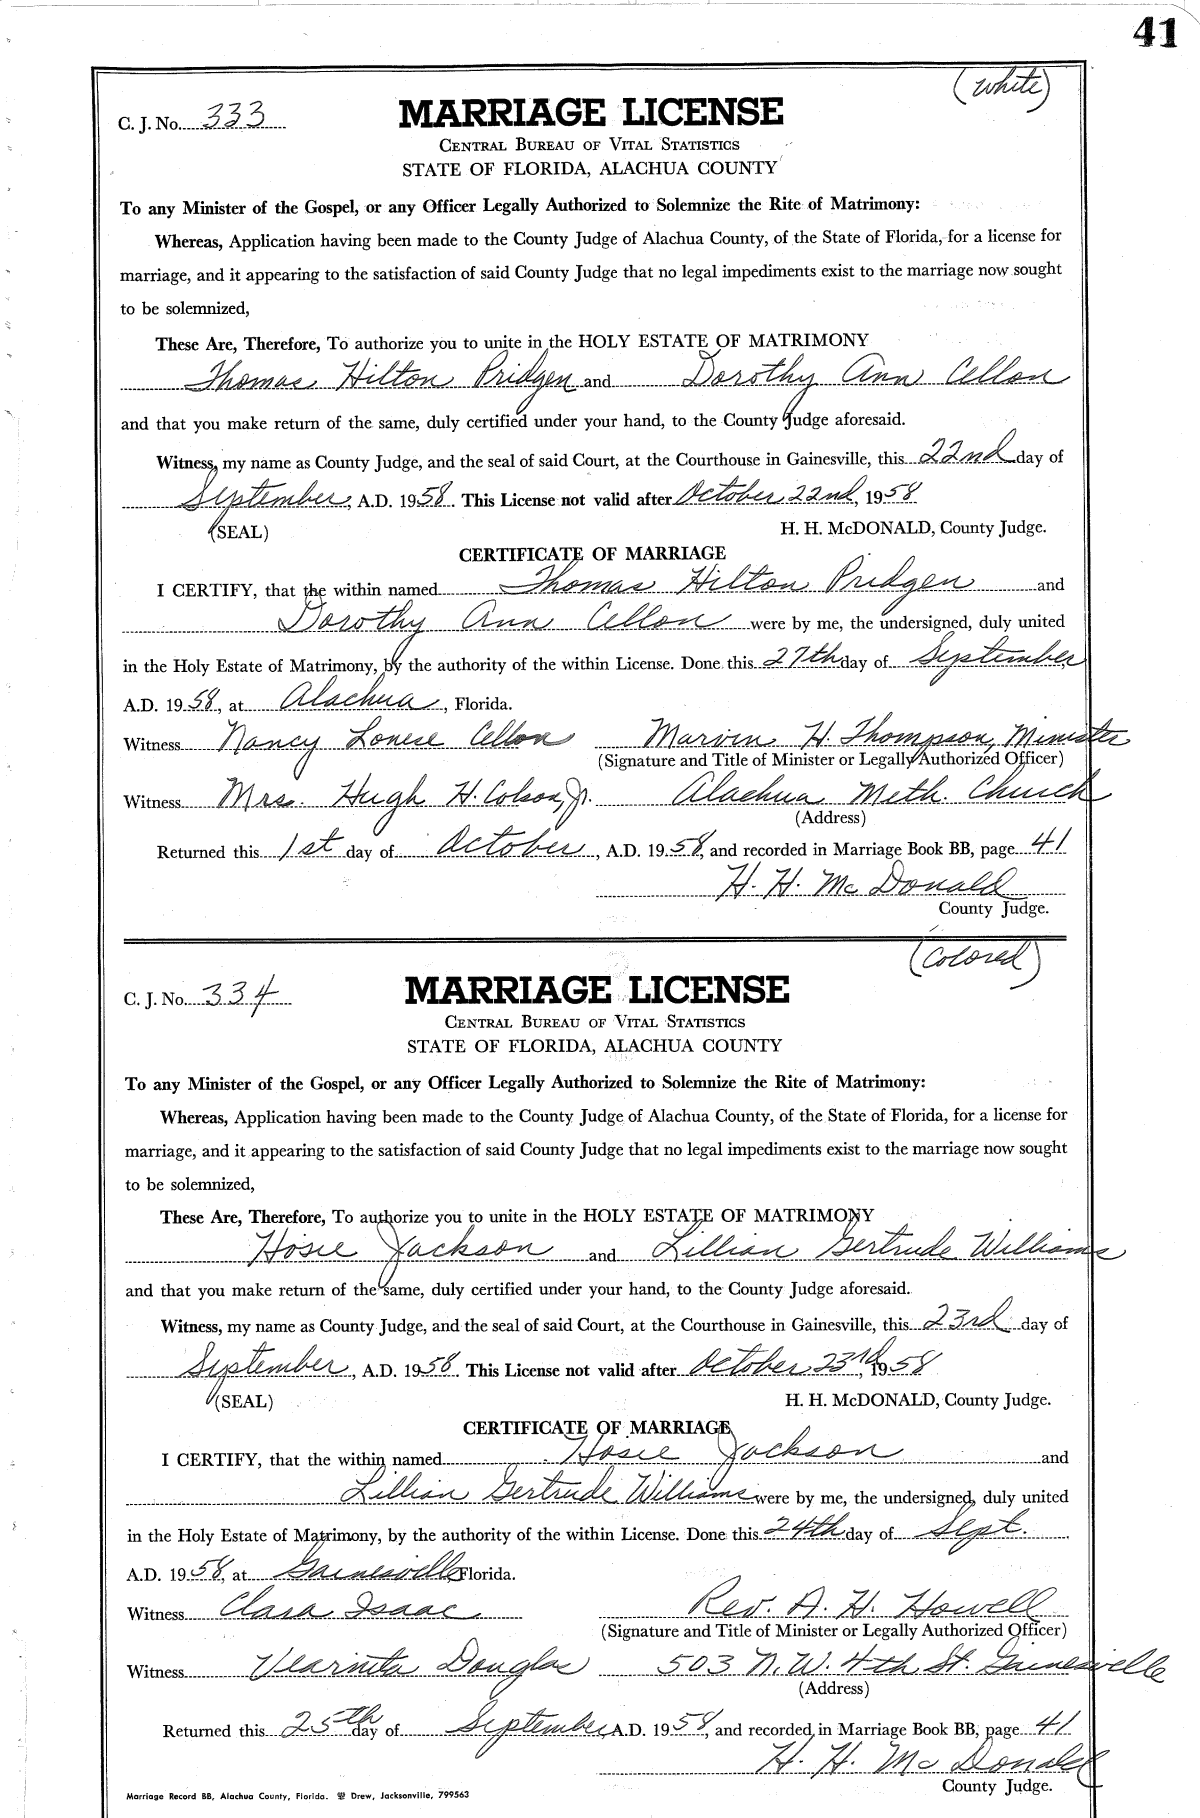 41
(white)
C. J. No. 333
MARRIAGE LICENSE
CENTRAL BUREAU OF VITAL STATISTICS
STATE OF FLORIDA, ALACHUA COUNTY
To any Minister of the Gospel, or any Officer Legally Authorized to Solemnize the Rite of Matrimony:
Whereas, Application having been made to the County Judge of Alachua County, of the State of Florida, for a license for
marriage, and it appearing to the satisfaction of said County Judge that no legal impediments exist to the marriage now sought
to be solemnized,
These Are, Therefore, To authorize you to unite in the HOLY ESTATE OF MATRIMONY
Thomas Hilton Pridgen and Dorothy Ann Cellon
and that you make return of the same, duly certified under your hand, to the County Judge aforesaid.
Witness, my name as County Judge, and the seal of said Court, at the Courthouse in Gainesville, this 22nd day of
September, A.D. 1958. This License not valid after October 22nd, 1958
(SEAL) H. H. McDONALD, County Judge.
CERTIFICATE OF MARRIAGE
I CERTIFY, that the within named Thomas Hilton Pridgen and
Dorothy Ann Cellon were by me, the undersigned, duly united
in the Holy Estate of Matrimony, by the authority of the within License. Done this 27th day of September
A.D. 1958, at Alachua, Florida.
Witness Nancy Lonese Cellon Marvin H. Thompson, Minister
(Signature and Title of Minister or Legally Authorized Officer)
Witness Mrs. Hugh H. Colson, Jr. Alachua Meth. Church
(Address)
Returned this 1st day of October, A.D. 1958, and recorded in Marriage Book BB, page 41
H. H. McDonald
County Judge.
(Colored)
C. J. No. 334
MARRIAGE LICENSE
CENTRAL BUREAU OF VITAL STATISTICS
STATE OF FLORIDA, ALACHUA COUNTY
To any Minister of the Gospel, or any Officer Legally Authorized to Solemnize the Rite of Matrimony:
Whereas, Application having been made to the County Judge of Alachua County, of the State of Florida, for a license for
marriage, and it appearing to the satisfaction of said County Judge that no legal impediments exist to the marriage now sought
to be solemnized,
These Are, Therefore, To authorize you to unite in the HOLY ESTATE OF MATRIMONY
Hosie Jackson and Lillian Gertrude Williams
and that you make return of the same, duly certified under your hand, to the County Judge aforesaid.
Witness, my name as County Judge, and the seal of said Court, at the Courthouse in Gainesville, this 23rd day of
September, A.D. 1958. This License not valid after October 23rd, 1958
(SEAL) H. H. McDONALD, County Judge.
CERTIFICATE OF MARRIAGE
I CERTIFY, that the within named Hosie Jackson and
Lillian Gertrude Williams were by me, the undersigned, duly united
in the Holy Estate of Matrimony, by the authority of the within License. Done this 24th day of Sept.
A.D. 1958, at Gainesville Florida.
Witness Clara Isaac Rev. A. H. Howell
(Signature and Title of Minister or Legally Authorized Officer)
Witness Vearnita Douglas 503 N. W. 4th St. Gainesville
(Address)
Returned this 25th day of September, A.D. 1958, and recorded in Marriage Book BB, page 41
H. H. McDonald
County Judge.
Marriage Record BB, Alachua County, Florida. Drew, Jacksonville, 799563